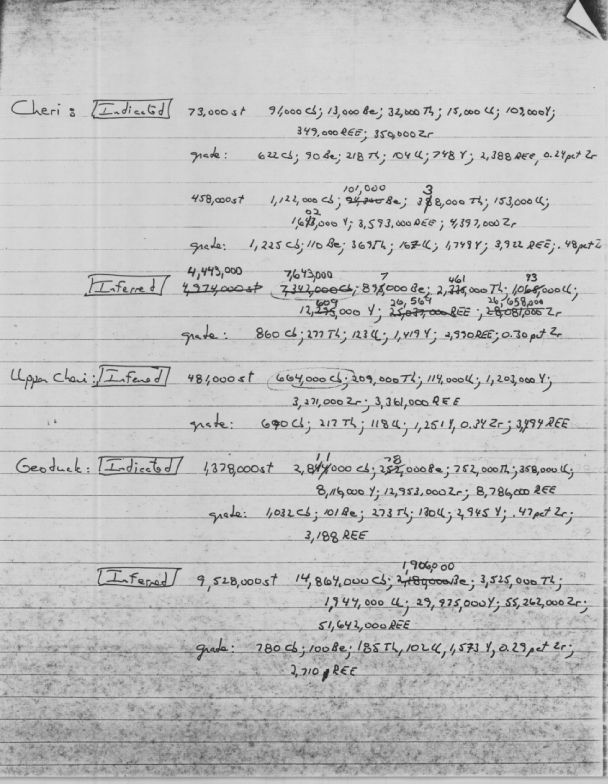 Cheri: Indicated 73,000 st 91,000 Cb; 13,000 Be; 32,000 Th; 15,000 U; 109,000 Y;
349,000 REE; 350,000 Zr
grade: 622 Cb; 90 Be; 218 Th; 104 U; 748 Y; 2,388 REE, 0.24 pct Zr
101,000 3
458,000 st 1,122,000 Cb; Be; 338,000 Th; 153,000 U;
02
1,602,000 Y; 3,593,000 REE; 4,397,000 Zr
grade: 1,225 Cb; 110 Be; 369 Th; 167 U; 1,749 Y; 3,922 REE; .48 pct Zr
4,443,000 7,643,000 7 461 93
Inferred 4,974,000 st 7,342,000 Cb; 897,000 Be; Th; U;
609 26,564 26,658,000
12, ,000 Y; REE; 28,081,000 Zr
grade: 860 Cb; 277 Th; 123 U; 1,419 Y; 2,990 REE; 0.30 pct Zr
Upper Cheri: Inferred 481,000 st 664,000 Cb; 209,000 Th; 114,000 U; 1,203,000 Y;
3,271,000 Zr; 3,361,000 REE
" grade: 690 Cb; 217 Th; 118 U; 1,251 Y, 0.34 Zr; 3,494 REE
Geoduck: Indicated 1,378,000 st Cb; Be; 752,000 Th; 358,000 U;
8,116,000 Y; 12,953,000 Zr; 8,786,000 REE
grade: 1,032 Cb; 101 Be; 273 Th; 130 U; 2,945 Y; .47 pct Zr;
3,188 REE
1,906,000
Inferred 9,528,000 st 14,864,000 Cb; Be; 3,525,000 Th;
1,944,000 U; 29,975,000 Y; 55,262,000 Zr;
51,642,000 REE
grade: 780 Cb; 100 Be; 185 Th, 102 U, 1,573 Y, 0.29 pct Zr;
2,710 REE